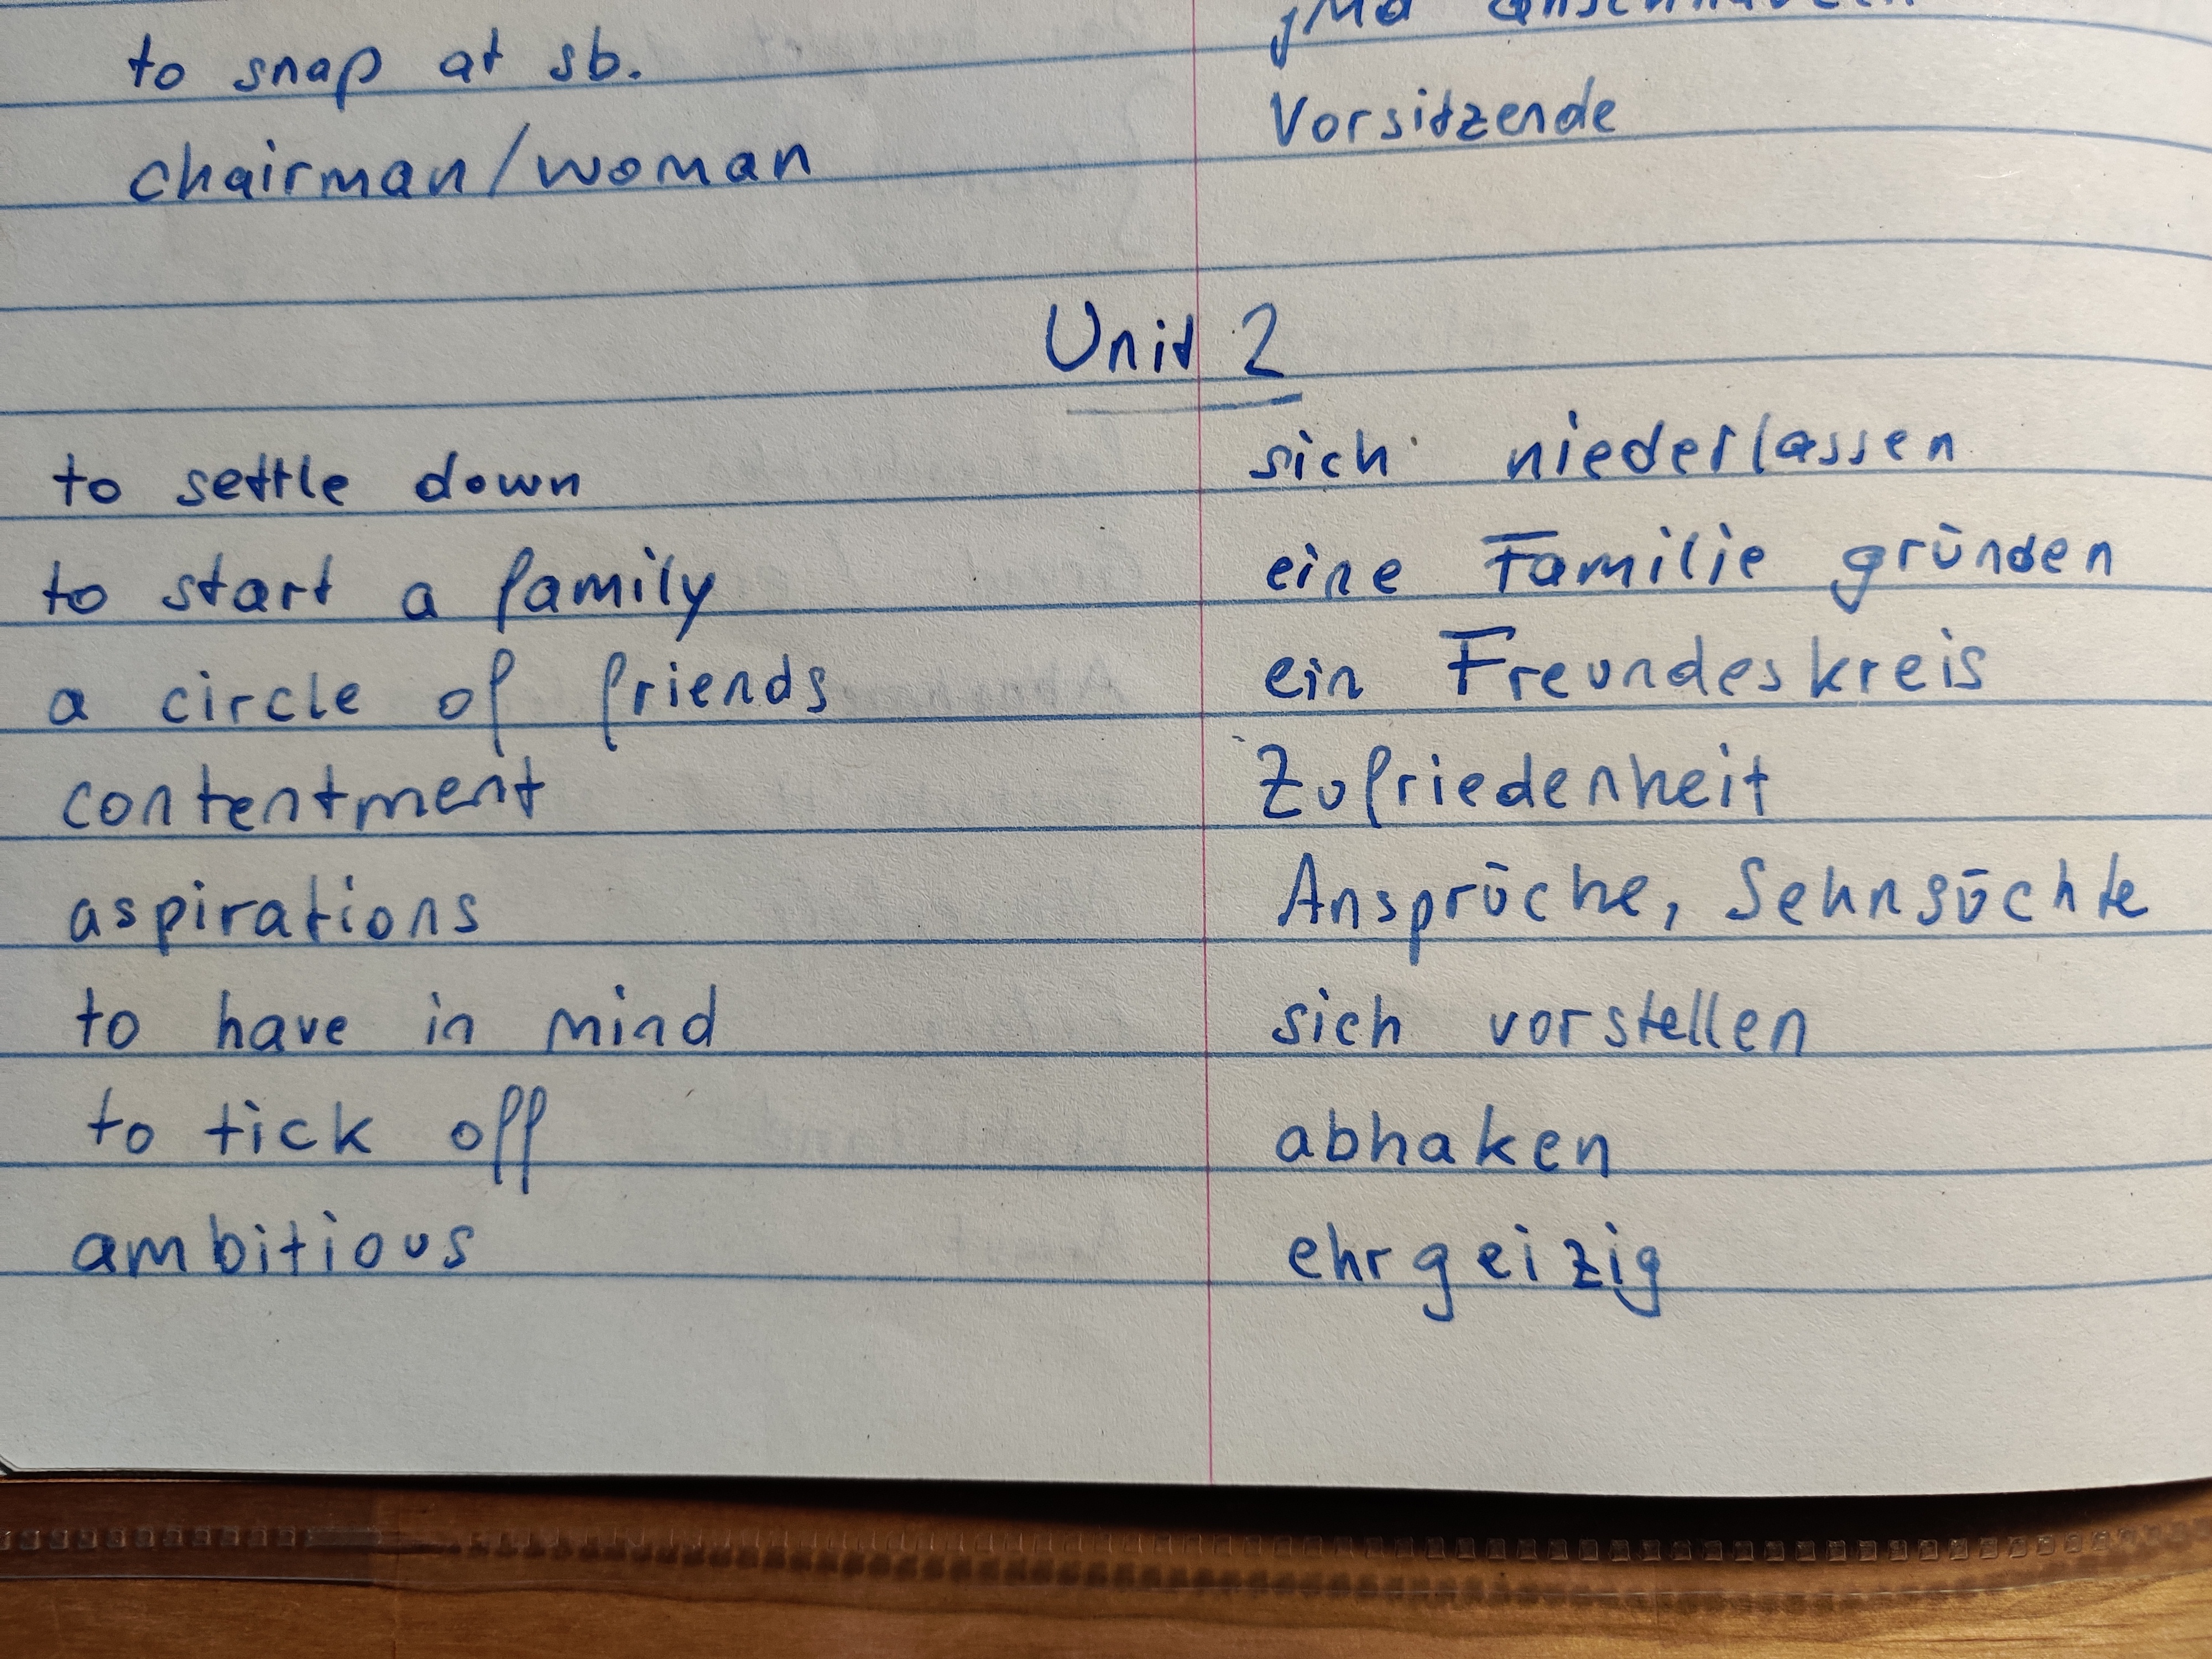 to snap at sb.
chairman/woman Vorsitzende
Unit 2
to settle down sich niederlassen
to start a family eine Familie gründen
a circle of friends ein Freundeskreis
contentment Zufriedenheit
aspirations Ansprüche, Sehnsüchte
to have in mind sich vorstellen
to tick off abhaken
ambitious ehrgeizig